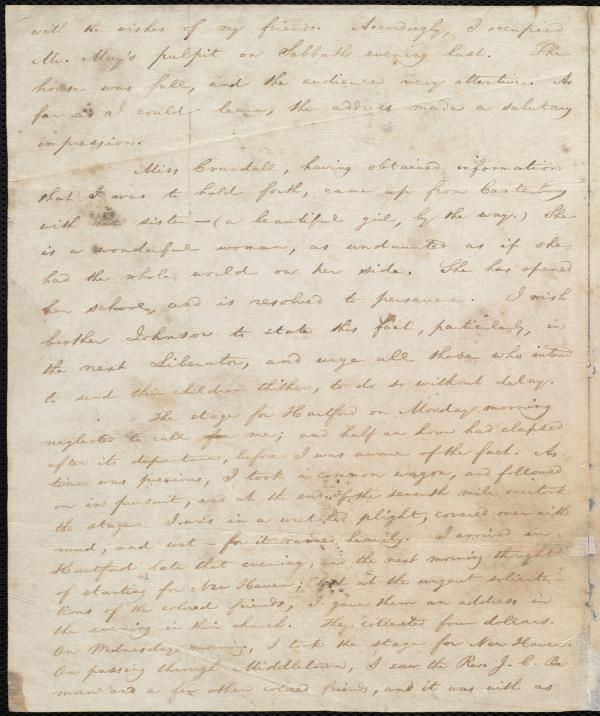 with the wishes of my friends. Accordingly, I occupied
Mr. May's pulpit on Sabbath evening last. The
house was full, and the audience very attentive. As
far as I could learn, the address made a salutary
impression.
Miss Crandall, having obtained information
that I was to hold forth, came up from Canterbury
with her sister—(a beautiful girl, by the way.) She
is a wonderful woman, as undaunted as if she
had the whole world on her side. She has opened
her school, and is resolved to persevere. I wish
brother Johnson to state this fact, particularly, in
the next Liberator, and urge all those who intend
to send their children thither, to do so without delay.
The stage for Hartford on Monday morning
neglected to call for me; and half an hour had elapsed
after its departure, before I was aware of the fact. As
time was precious, I took a common wagon, and followed
on in pursuit, and at the end of the seventh mile overtook
the stage. I was in a wretched plight, covered over with
mud, and wet—for it rained heavily. I arrived in
Hartford late that evening, and the next morning thought
of starting for New Haven; but at the urgent solicita-
tions of the colored friends, I gave them an address in
the evening in their church. They collected four dollars.
On Wednesday morning, I took the stage for New Haven.
On passing through Middletown, I saw the Rev. J. C. Be-
man and a few other colored friends, and it was with as